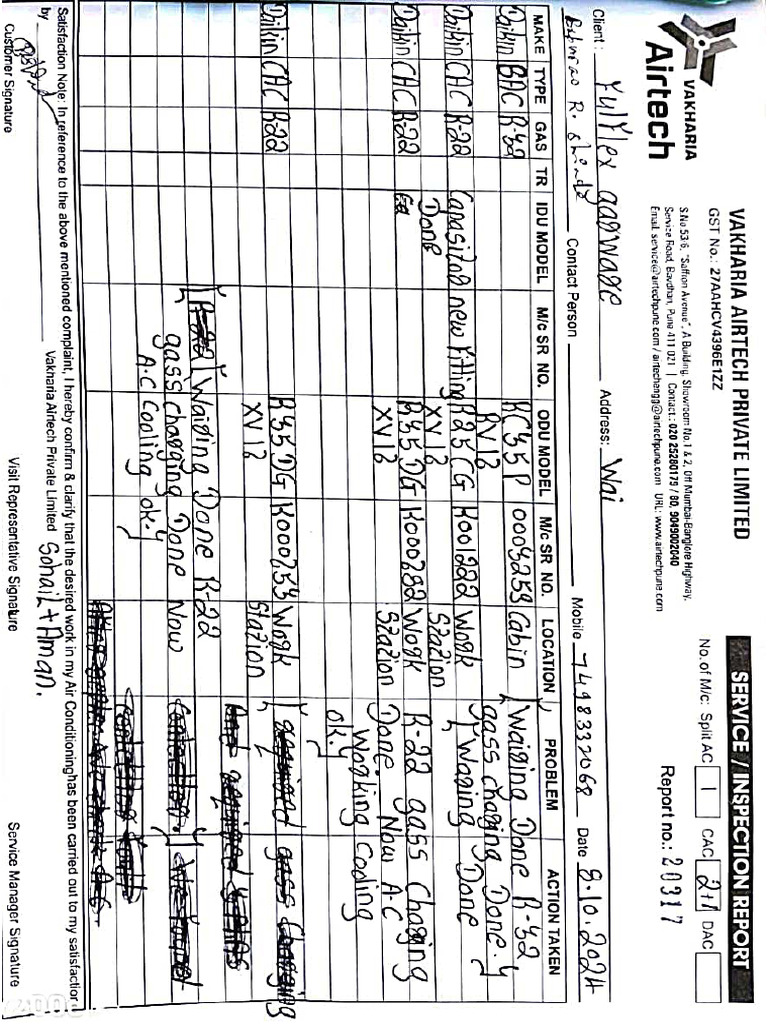 VAKHARIA
Airtech
VAKHARIA AIRTECH PRIVATE LIMITED
GST No.: 27AAHCV4396E1ZZ
S.No 53/6, "Saffron Avenue", A Building, Showroom No.1 & 2, Off Mumbai-Banglore Highway,
Service Road, Bavdhan, Pune 411 021 | Contact : 020 25280179 / 80, 9049002040
Email. service@airtechpune.com / airtechengg@airtechpune.com URL: www.airtechpune.com
SERVICE / INSPECTION REPORT
No.of M/c: Split AC 1 CAC 2+1 DAC
Report no.: 20317
Client : Address: Wai
R. Shinde Contact Person Mobile 7498332068 Date 8.10.2024
MAKE TYPE GAS TR IDU MODEL M/c SR NO. ODU MODEL M/c SR NO. LOCATION PROBLEM ACTION TAKEN
Daikin BAC R-32 RC35P 0003253 Cabin Waiging Done R-32
RV16 gass chaging Done.
Daikin CAC R-22 Capasitab new Fitting R25CG K001222 Work Waging Done
Done XV16 Station
Daikin CAC R-22 R35DG K000282 Wogk R-22 gass Chaging
XV16 Station Done. Now A-C
Wogking Coding
ok.
Daikin CAC R-22 R35DG K000253 Wogk
XV16 Station
Waiging Done R-22
gass chaging Done Now
A.C Cooling ok.
Satisfaction Note: In reference to the above mentioned complaint, I hereby confirm & clarify that the desired work in my Air Conditioning has been carried out to my satisfaction
by Vakharia Airtech Private Limited Sohail + Aman.
Customer Signature Visit Representative Signature Service Manager Signature